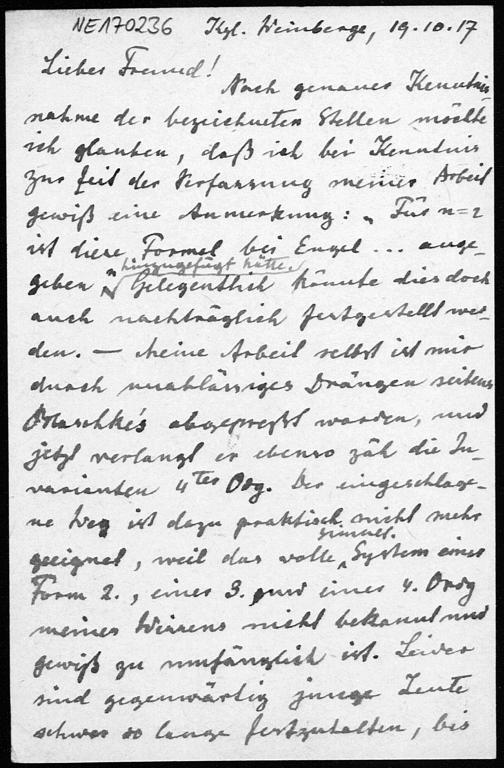 NE170236 Kgl. Weinberge, 19.10.17
Lieber Freund!
Nach genauer Kenntnis-
nahme der bezeichneten Stellen möchte
ich glauben, daß ich bei Kenntnis
zur Zeit der Verfassung meiner Arbeit
gewiß eine Anmerkung: „Für n=2
ist diese Formel bei Engel ... ange-
geben" hinzugefügt hätte.
Gelegentlich könnte dies doch
auch nachträglich festgestellt wer-
den. — Meine Arbeit selbst ist mir
durch unablässiges Drängen seitens
Blaschke's abgepreßt worden, und
jetzt verlangt er ebenso zäh die In-
varianten 4ter Odg. Der eingeschlage-
ne Weg ist dazu praktisch nicht mehr
geeignet, weil das volle simult. System einer
Form 2., einer 3. und einer 4. Ordg
meines Wissens nicht bekannt und
gewiß zu umfänglich ist. Leider
sind gegenwärtig junge Leute
schwer so lange festzuhalten, bis